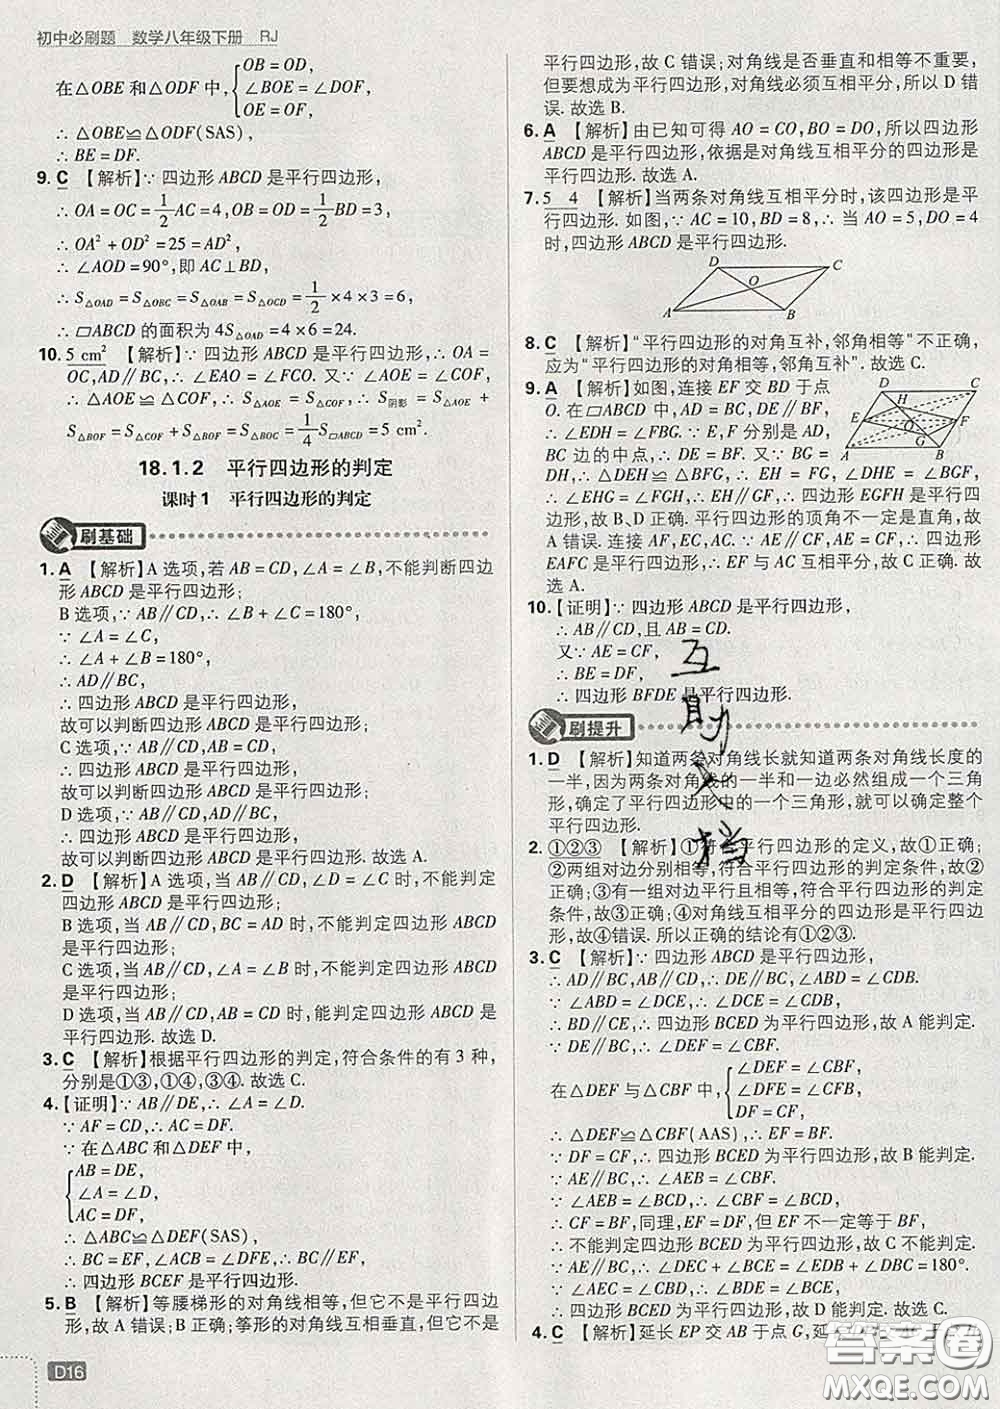 初中必刷题 数学八年级下册 RJ
在△OBE 和△ODF 中,{OB=OD,
∠BOE=∠DOF,
OE=OF,
∴△OBE≌△ODF(SAS),
∴BE=DF.
9. C 【解析】∵四边形 ABCD 是平行四边形,
∴OA=OC=1/2AC=4,OB=OD=1/2BD=3,
∴OA²+OD²=25=AD²,
∴∠AOD=90°,即 AC⊥BD,
∴S△OAD=S△OBC=S△OAB=S△OCD=1/2×4×3=6,
∴▱ABCD 的面积为 4S△OAD=4×6=24.
10. 5 cm² 【解析】∵四边形 ABCD 是平行四边形,∴OA=
OC,AD∥BC,∴∠EAO=∠FCO. 又∵∠AOE=∠COF,
∴△AOE≌△COF,∴S△AOE=S△COF,∴S阴影=S△AOE+
S△BOF=S△COF+S△BOF=S△BOC=1/4S▱ABCD=5 cm².
18.1.2 平行四边形的判定
课时1 平行四边形的判定
刷基础
1. A 【解析】A 选项,若 AB=CD,∠A=∠B,不能判断四边
形 ABCD 是平行四边形;
B 选项,∵AB∥CD,∴∠B+∠C=180°,
∵∠A=∠C,
∴∠A+∠B=180°,
∴AD∥BC,
∴四边形 ABCD 是平行四边形,
故可以判断四边形 ABCD 是平行四边形;
C 选项,∵AB∥CD,AB=CD,
∴四边形 ABCD 是平行四边形,
故可以判断四边形 ABCD 是平行四边形;
D 选项,∵AB∥CD,AD∥BC,
∴四边形 ABCD 是平行四边形,
故可以判断四边形 ABCD 是平行四边形. 故选 A.
2. D 【解析】A 选项,当∠A=∠B,∠C=∠D 时,不能判定
四边形 ABCD 是平行四边形;
B 选项,当 AB∥CD,BC=AD 时,不能判定四边形 ABCD
是平行四边形;
C 选项,当 AB∥CD,∠A=∠B 时,不能判定四边形 ABCD
是平行四边形;
D 选项,当 AB∥CD,AB=CD 时,能判定四边形 ABCD 是
平行四边形. 故选 D.
3. C 【解析】根据平行四边形的判定,符合条件的有 3 种,
分别是①③,①④,③④. 故选 C.
4. 【证明】∵AB∥DE,∴∠A=∠D.
∵AF=CD,∴AC=DF.
∵在△ABC 和△DEF 中,
{AB=DE,
∠A=∠D,
AC=DF,
∴△ABC≌△DEF(SAS),
∴BC=EF,∠ACB=∠DFE,∴BC∥EF,
∴四边形 BCEF 是平行四边形.
5. B 【解析】等腰梯形的对角线相等,但它不是平行四边
形,故 A 错误;B 正确;筝形的对角线互相垂直,但它不是
D16
平行四边形,故 C 错误;对角线是否垂直和相等不重要,
但要想成为平行四边形,对角线必须互相平分,所以 D 错
误. 故选 B.
6. A 【解析】由已知可得 AO=CO,BO=DO,所以四边形
ABCD 是平行四边形,依据是对角线互相平分的四边形是
平行四边形. 故选 A.
7. 5 4 【解析】当两条对角线互相平分时,该四边形是平
行四边形. 如图,∵AC=10,BD=8,∴当 AO=5,DO=4
时,四边形 ABCD 是平行四边形.
D C
O
A B
8. C 【解析】“平行四边形的对角互补,邻角相等”不正确,
应为“平行四边形的对角相等,邻角互补”. 故选 C.
9. A 【解析】如图,连接 EF 交 BD 于点
O. 在▱ABCD 中,AD=BC,DE∥BF,
∴∠EDH=∠FBG. ∵E,F 分别是 AD,
BC 边的中点,∴DE=BF. 又∵BG=
DH,∴△EDH≌△FBG,∴HE=FG,∠DHE=∠BGF,
∴∠EHG=∠FGH,∴EH∥GF,∴四边形 EGFH 是平行四
边形,故 B、D 正确. 平行四边形的顶角不一定是直角,故
A 错误. 连接 AF,EC,AC. ∵CF∥AE,AE=CF,∴四边形
EAFC 是平行四边形,∴EF 与 AC 互相平分,故 C 正确. 故
选 A.
D C
H
E O F
G
A B
10. 【证明】∵四边形 ABCD 是平行四边形,
∴AB∥CD,且 AB=CD.
又∵AE=CF,
∴BE=DF,
∴四边形 BFDE 是平行四边形.
互助文档
刷提升
1. D 【解析】知道两条对角线长就知道两条对角线长度的
一半,因为两条对角线的一半和一边必然组成一个三角
形,确定了平行四边形中的一个三角形,就可以确定整个
平行四边形.
2. ①②③ 【解析】①符合平行四边形的定义,故①正确;
②两组对边分别相等,符合平行四边形的判定条件,故②
正确;③有一组对边平行且相等,符合平行四边形的判定
条件,故③正确;④对角线互相平分的四边形是平行四边
形,故④错误. 所以正确的结论有①②③.
3. C 【解析】∵四边形 ABCD 是平行四边形,
∴AD∥BC,AB∥CD,∴DE∥BC,∠ABD=∠CDB.
∵∠ABD=∠DCE,∴∠DCE=∠CDB,
∴BD∥CE,∴四边形 BCED 为平行四边形,故 A 能判定.
∵DE∥BC,∴∠DEF=∠CBF.
在△DEF 与△CBF 中,{∠DEF=∠CBF,
∠DFE=∠CFB,
DF=CF,
∴△DEF≌△CBF(AAS),∴EF=BF.
∵DF=CF,∴四边形 BCED 为平行四边形,故 B 能判定.
∵AE∥BC,∴∠AEB=∠CBF.
∵∠AEB=∠BCD,∴∠CBF=∠BCD,
∴CF=BF,同理,EF=DF,但 EF 不一定等于 BF,
∴不能判定四边形 BCED 为平行四边形,故 C 不能判定.
∵AE∥BC,∴∠DEC+∠BCE=∠EDB+∠DBC=180°.
∵∠AEC=∠CBD,∴∠BDE=∠BCE,
∴四边形 BCED 为平行四边形,故 D 能判定. 故选 C.
4. C 【解析】延长 EP 交 AB 于点 G,延
答案圈
MXQE.COM